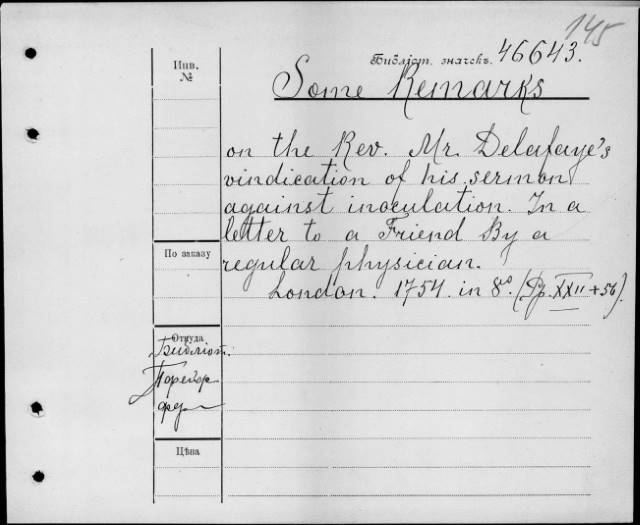 145
Библіот. значекъ. 46643.
Инв.
№
Some Remarks
on the Rev. Mr. Delafaye's
vindication of his sermon
against inoculation. In a
letter to a Friend By a
regular physician.
London. 1754. in 8º. (Др. XXII + 56).
По заказу
Откуда
Библіот.
Цѣна